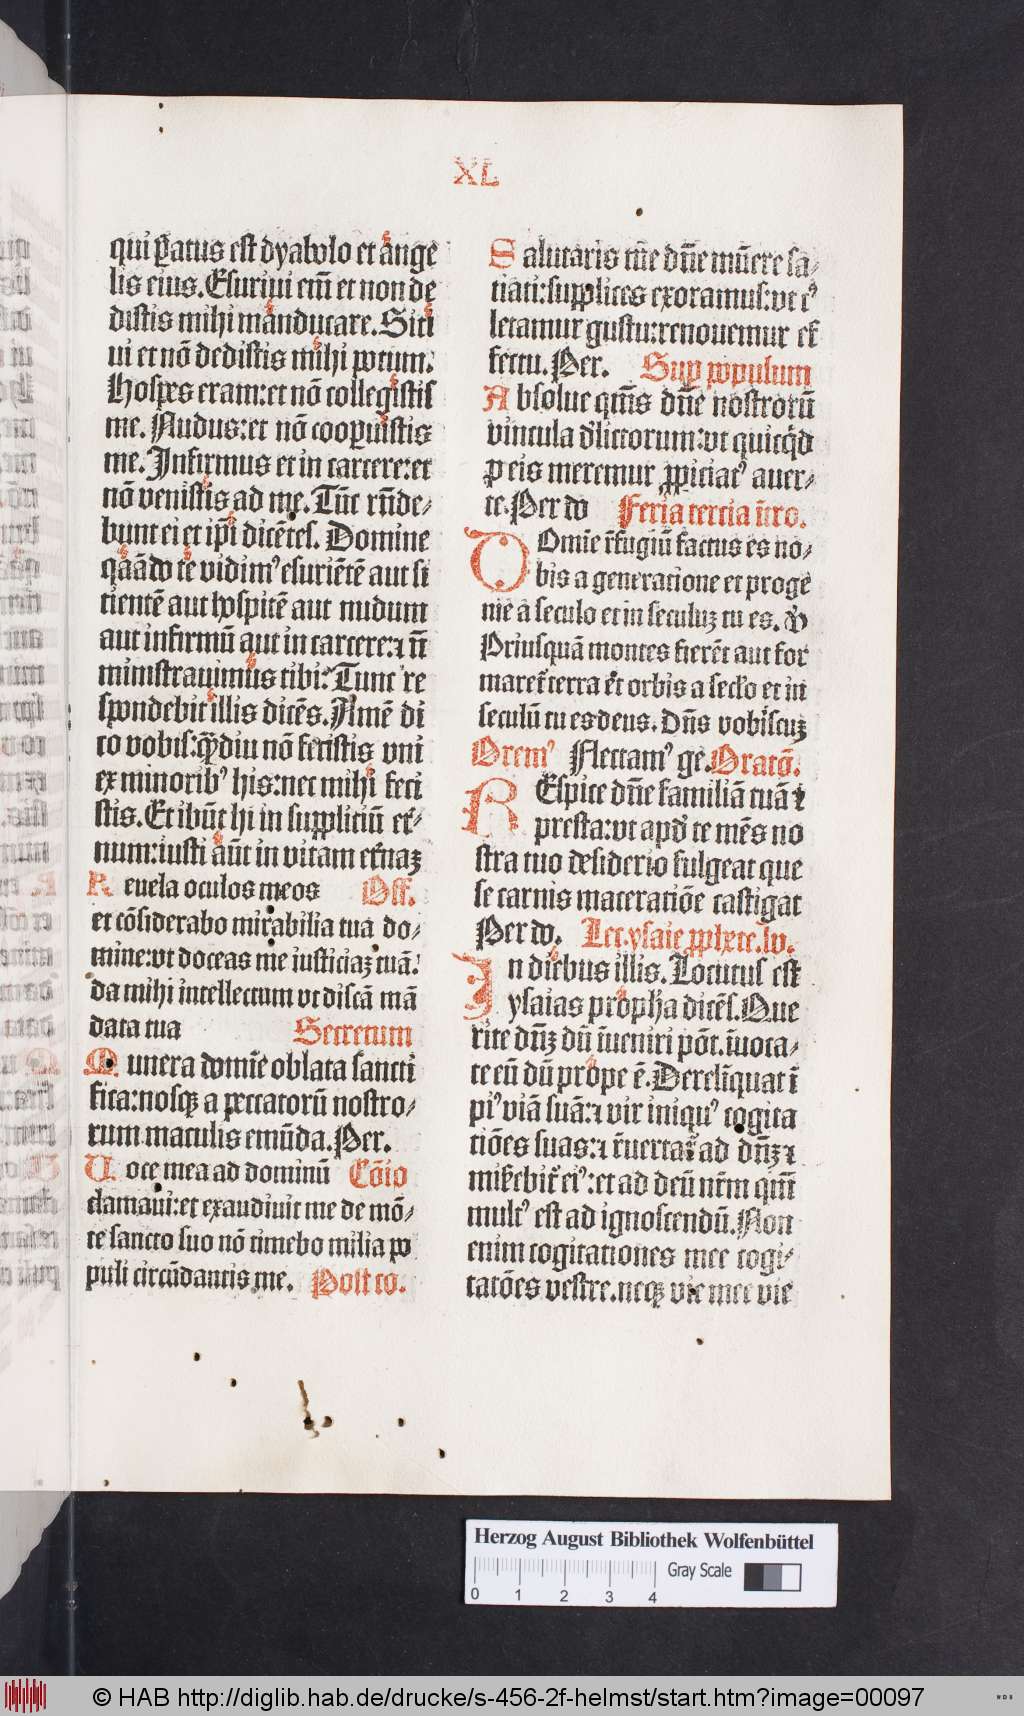 XL
qui ꝑatus est dyabolo et ange
lis eius. Esuriui em̄ et non de
distis mihi manducare. Siti
ui et nō dedistis mihi potum:
Hospes eram: et nō collegistis
me. Nudus: et nō cooꝑuistis
me. Infirmus et in carcere: et
nō venistis ad me. Tūc rn̄de/
bunt ei et ip̄i dicētes. Domine
qn̄do te vidimꝰ esuriētē aut si
tientē aut hospitē aut nudum
aut infirmū aut in carcere: ⁊ nō
ministrauimus tibi: Tunc re
spondebit illis dicēs. Amē di
co vobis: qͣ̄diu nō fecistis vni
ex minoribꝰ his: nec mihi feci
stis. Et ibūt hi in suppliciū et̉/
num: iusti aūt in vitam et̉naꝫ
Reuela oculos meos Off.
et cōsiderabo mirabilia tua do/
mine: vt doceas me iusticiaꝫ tuā:
da mihi intellectum vt discā mā
data tua Secretum
Munera domīe oblata sancti
fica: nosqꝫ a peccatorū nostro/
rum maculis emūda. Per.
Uoce mea ad dominū Cōio
clamaui: et exaudiuit me de mō/
te sancto suo nō timebo milia po
puli circūdantis me. Post co.
Salutaris tui dn̄e mūere sa/
tiati: supplices exoramus: vt cꝰ
letamur gustu: renouemur ef
fectu. Per. Suꝑ populum
Absolue qm̄s dn̄e nostrorū
vincula dl̓ictorum: vt quicq̄d
ꝓ eis meremur ꝓpiciatꝰ auer/
te. Per do Feria tercia ītro.
DOmīe r̓fugiū factus es no/
bis a generatione et proge
nie a seculo et in seculuꝫ tu es. ꝟ
Priusquā montes fierēt aut for
maret̉ terra et orbis a sec̓lo et in
seculū tu es deus. Dn̄s vobiscuꝫ
Oremꝰ Flectamꝰ ge. Oratō.
REspice dn̄e familiā tuā ⁊
presta: vt apd̓ te mēs no
stra tuo desiderio fulgeat que
se carnis maceratiōe castigat
Per do. Lec. ysaie ꝓphete. lv.
In diebus illis. Locutus est
ysaias propha dicēs. Que
rite dn̄ꝫ dū īueniri pōt. īuoca/
te eū dū prope ē. Derelīquat ī
piꝰ viā suā: ⁊ vir iniquꝰ cogita
tiōes suas: ⁊ r̓uertat̉ ad dn̄ꝫ ⁊
mis̓ebit̉ eiꝰ: et ad deū nr̄m qm̄
multꝰ est ad ignoscendū. Non
enim cogitationes mee cogi/
tatōes vestre. neqꝫ vie mee vie
Herzog August Bibliothek Wolfenbüttel
0 1 2 3 4 Gray Scale
© HAB http://diglib.hab.de/drucke/s-456-2f-helmst/start.htm?image=00097